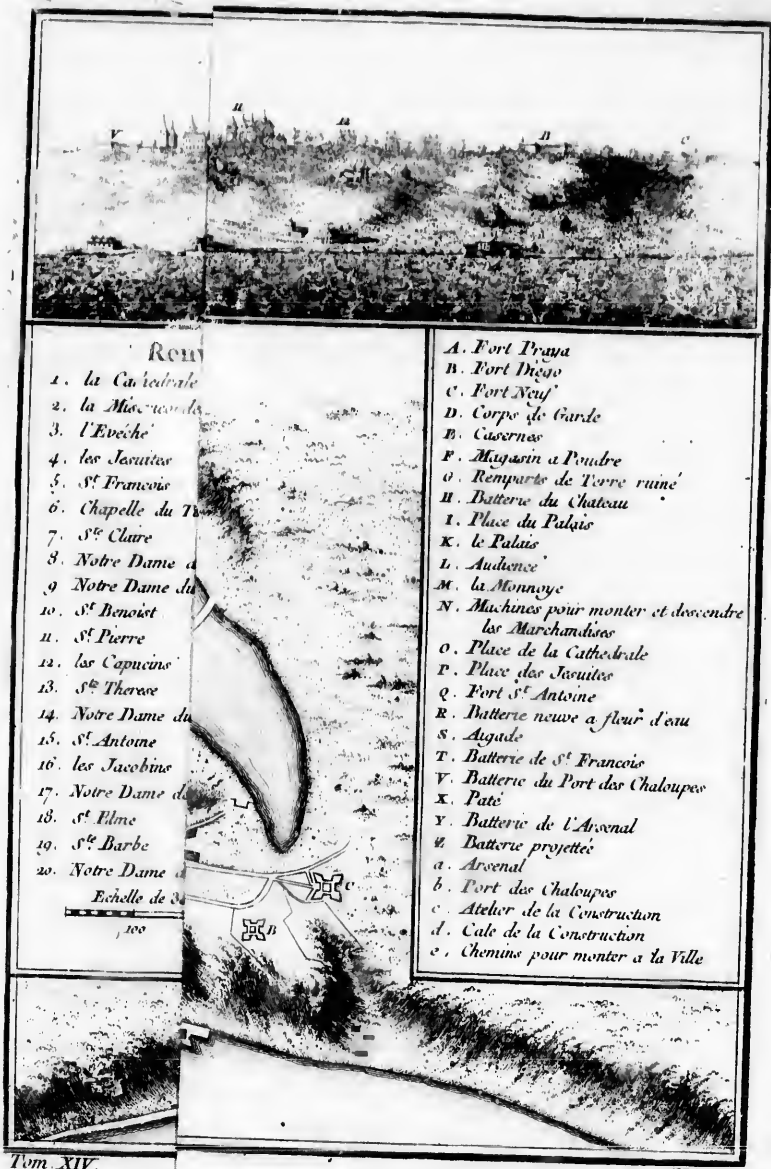 V
11
12
B
C
1. la Cathedrale
2. la Misericorde
3. l'Evéché
4. les Jesuites
5. St. Francois
6. Chapelle du
7. Ste. Claire
8. Notre Dame d
9 Notre Dame du
10. St. Benoist
11. St. Pierre
12. les Capucins
13. Ste. Therese
14. Notre Dame du
15. St. Antoine
16. les Jacobins
17. Notre Dame d
18. St. Elme
19. Ste. Barbe
20. Notre Dame d
Echelle de
100
A. Fort Praya
B. Fort Diégo
C. Fort Neuf
D. Corps de Garde
E. Casernes
F. Magasin a Poudre
G. Remparts de Terre ruiné
H. Batterie du Chateau
I. Place du Palais
K. le Palais
L. Audience
M. la Monnoye
N. Machines pour monter et descendre
les Marchandises
O. Place de la Cathedrale
P. Place des Jesuites
Q. Fort St. Antoine
R. Batterie neuve a fleur d'eau
S. Aigade
T. Batterie de St. Francois
V. Batterie du Port des Chaloupes
X. Paté
Y. Batterie de l'Arsenal
Z. Batterie projettée
a. Arsenal
b. Port des Chaloupes
c. Atelier de la Construction
d. Cale de la Construction
e. Chemins pour monter a la Ville
C
B
Tom. XIV.